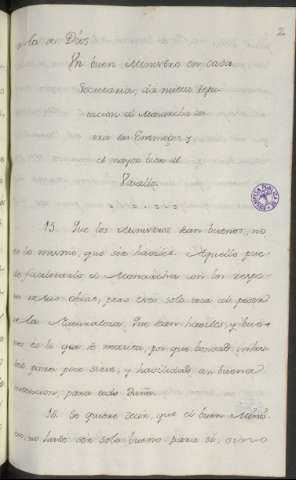 2
a la de Dios.
Un buen Ministro en cada
Secretaria, da nueva repu
tacion al Monarcha con
tra los Enemigos, y
el mayor bien al
Vasallo.
15. Que los Ministros sean buenos, no
es lo mismo, que sea habiles. Aquello pue
de facilitarlo el Monarcha con los
sus obras, pero esto solo es
de la Naturaleza. Que sean habiles, y bue
nos es lo que se necesita, por que bondad
para poco sirve, y habilidad, sin buena
intencion, para todo daña.
16. Se quiere decir, que el buen Minis
tro, no ha de ser solo bueno para si, sino